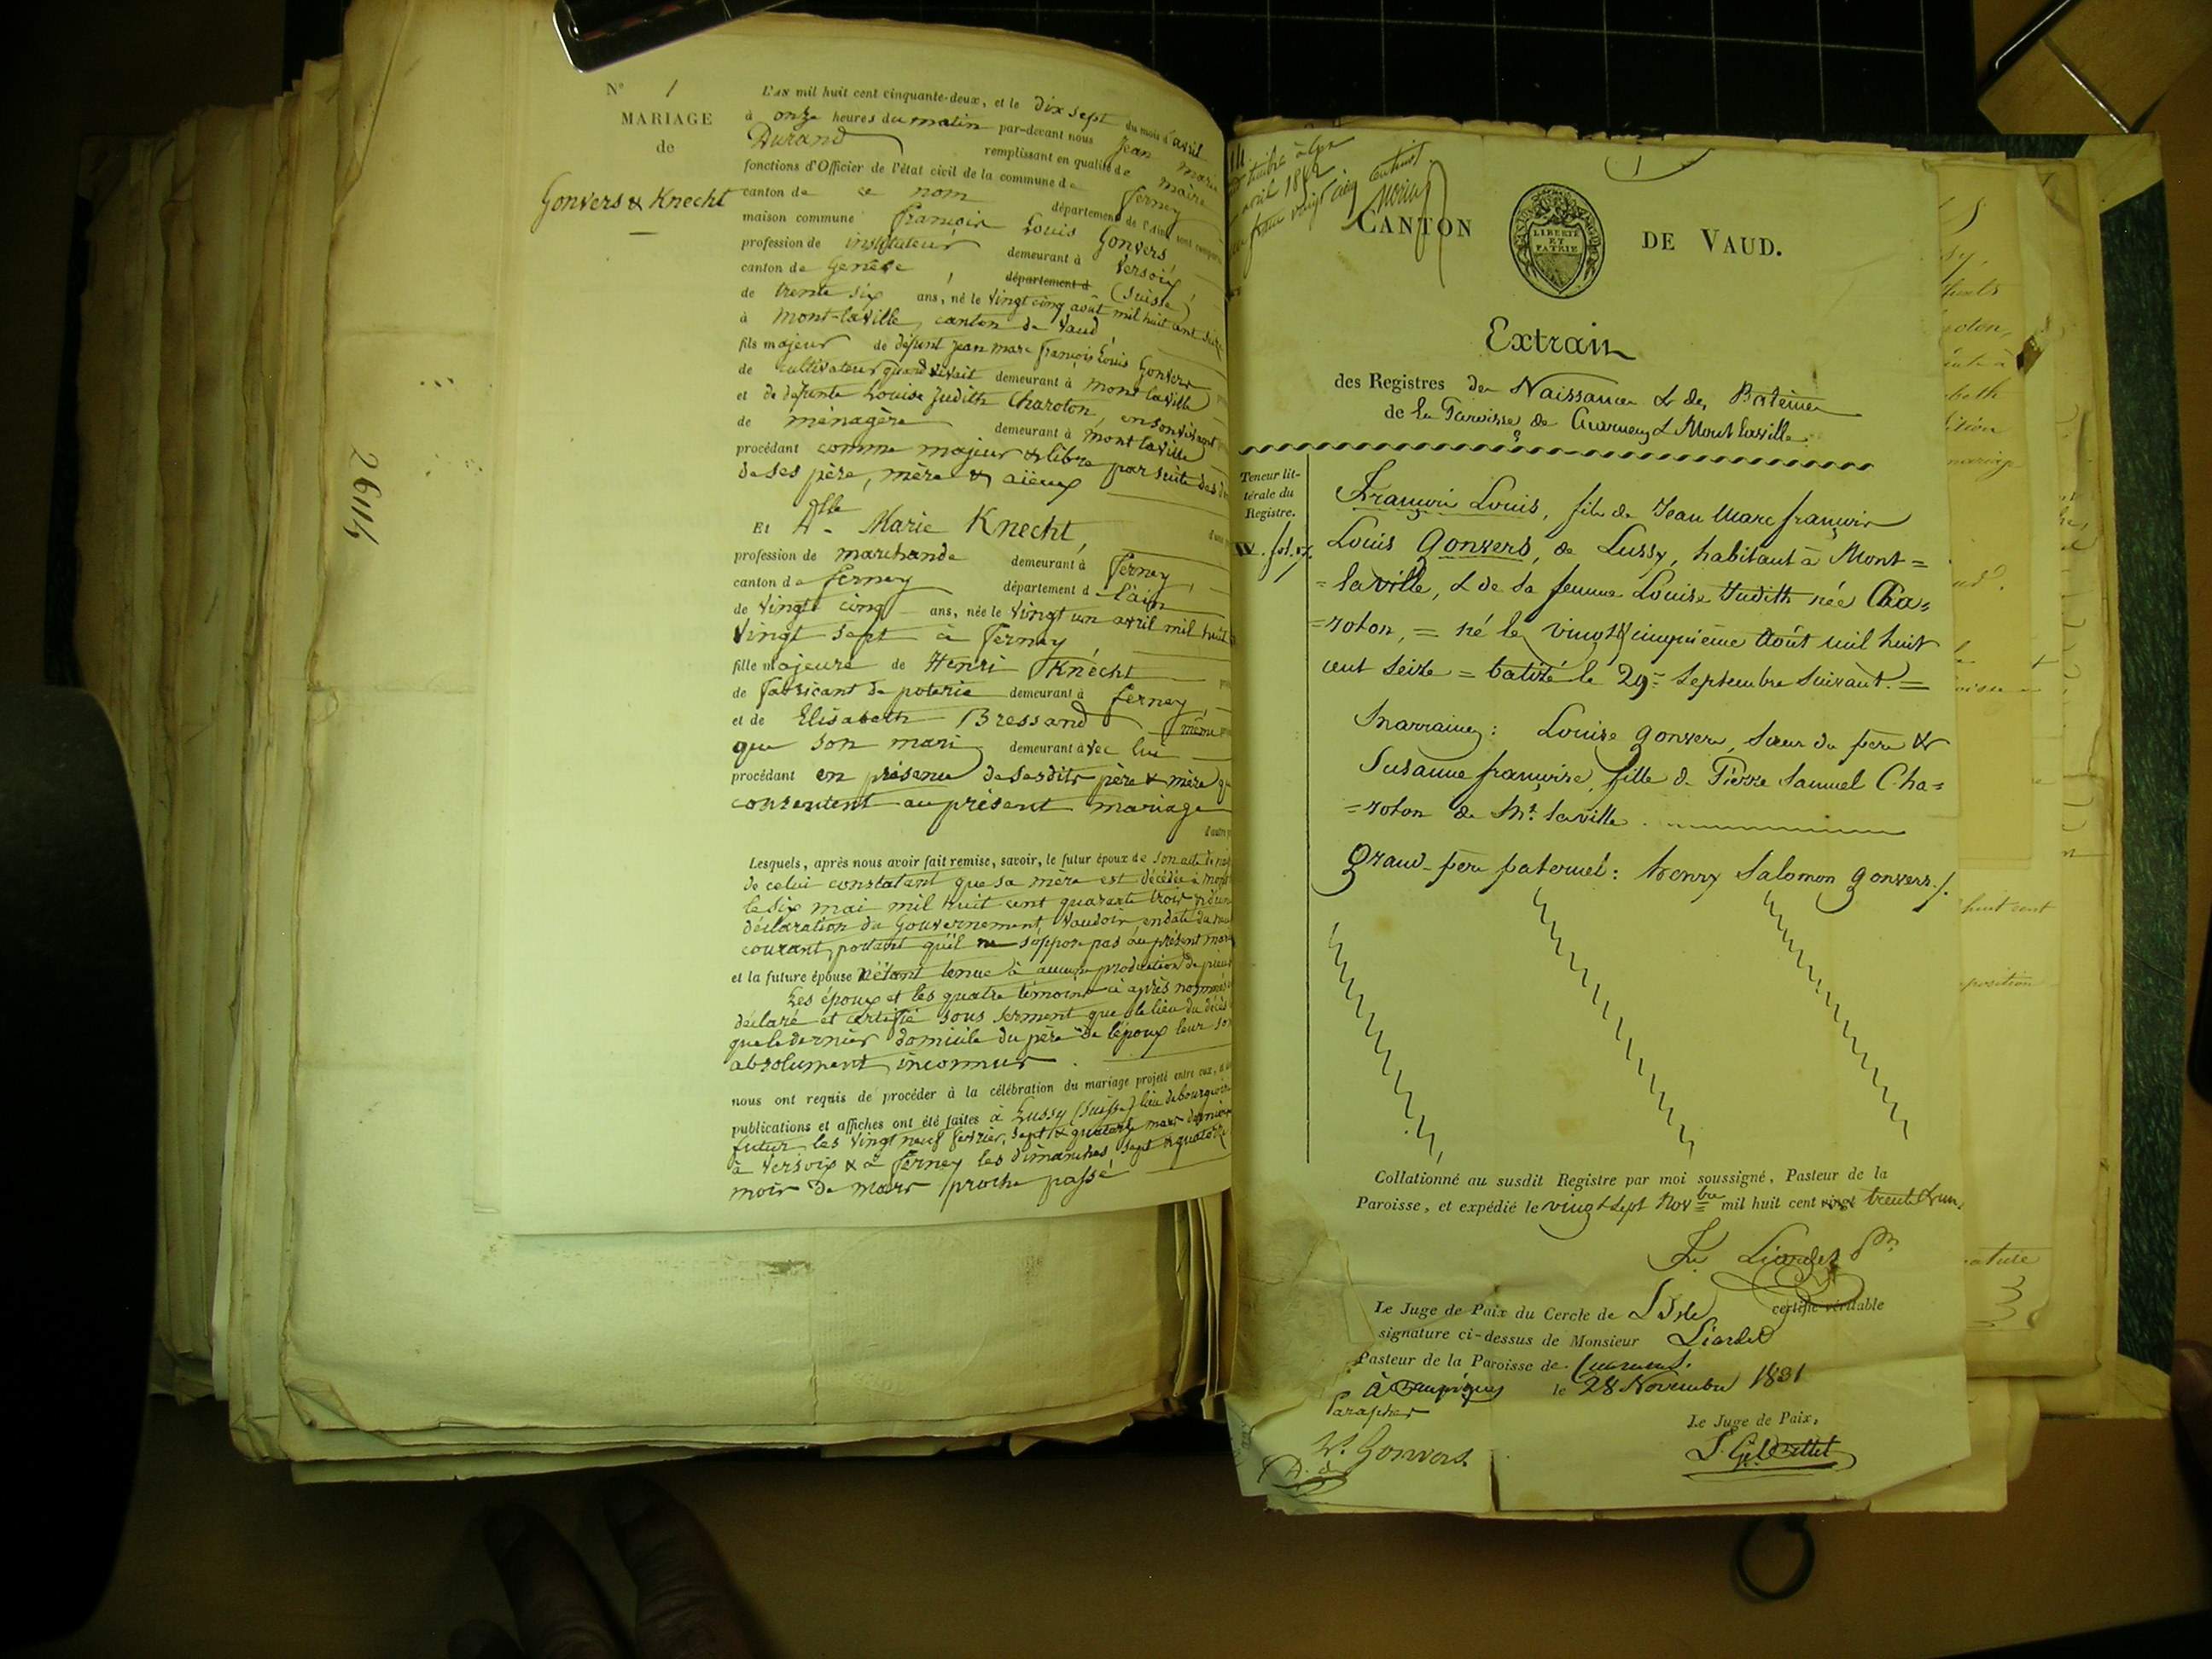 2644
N° 1
MARIAGE
de
Gonvers & Knecht
L'AN mil huit cent cinquante-deux, et le dix sept du mois d'avril
à onze heures du matin par-devant nous Jean Marie
Durand remplissant en qualité de maire
fonctions d'Officier de l'état civil de la commune de Ferney
canton de ce nom département de l'Ain sont comparus
maison commune françois Louis Gonvers
profession de instituteur demeurant à Versoix
canton de Genève, département d (Suisse)
de trente six ans, né le vingt cinq août mil huit cent seize
à Mont-laville, canton de Vaud
fils majeur de défunt Jean marc françois Louis Gonvers
de cultivateur quand vivait demeurant à mont laville
et de défunte Louise Judith Charoton, en son vivant
de ménagère demeurant à mont laville
procédant comme majeur & libre par suite des
de ses père, mère & aïeux
Et Dlle Marie Knecht,
profession de marchande demeurant à Ferney,
canton de ferney département d l'ain
de vingt cinq ans, née le vingt un avril mil huit
vingt sept à Ferney
fille majeure de Henri Knecht
de fabricant de poterie demeurant à ferney,
et de Elisabeth Bressand même
que son mari demeurant avec lui
procédant en présence de sesdits père & mère
consentent au présent mariage
Lesquels, après nous avoir fait remise, savoir, le futur époux de son acte de
de celui constatant que sa mère est décédée à
le six mai mil huit cent quarante trois,
déclaration du Gouvernement Vaudois, en date du
courant, portant qu'il ne s'oppose pas au présent
et la future épouse n'étant tenue à aucune production de
Les époux et les quatre témoins ci après nommés
déclaré et certifié sous serment que le lieu du décès
que le dernier domicile du père de l'époux leur
absolument inconnus.
nous ont requis de procéder à la célébration du mariage projeté entre eux,
publications et affiches ont été faites à Lussy (Suisse) lieu de bourgeoisie
futur les vingt neuf février, sept & quatorze mars dernier
à Versoix & à Ferney les dimanches sept & quatorze
mois de mars proche passé
avril 1852
CANTON DE VAUD.
LIBERTÉ
ET
PATRIE
Extrait
des Registres des Naissances & des Batêmes
de la Paroisse de Cuarnens & Mont laville
Teneur lit-
térale du
Registre.
François Louis, fils de Jean Marc françois
Louis Gonvers, de Lussy, habitant à Mont=
=laville, & de sa femme Louise Judith née Cha=
=roton, = né le vingt cinquième Août mil huit
cent seize = batizé le 29e Septembre suivant. =
Marraines: Louise Gonvers, soeur du père &
Susanne françoise, fille de Pierre Samuel Cha=
=roton de Mt. laville.
Grand-père paternel: henry Salomon Gonvers./.
Collationné au susdit Registre par moi soussigné, Pasteur de la
Paroisse, et expédié le vingt sept Novbre mil huit cent vingt trente & un,
Liardet
Le Juge de Paix du Cercle de L'Isle certifie véritable
signature ci-dessus de Monsieur Liardet
Pasteur de la Paroisse de Cuarnens.
le 28 Novembre 1831
Parapher
Gonvers.
Le Juge de Paix,